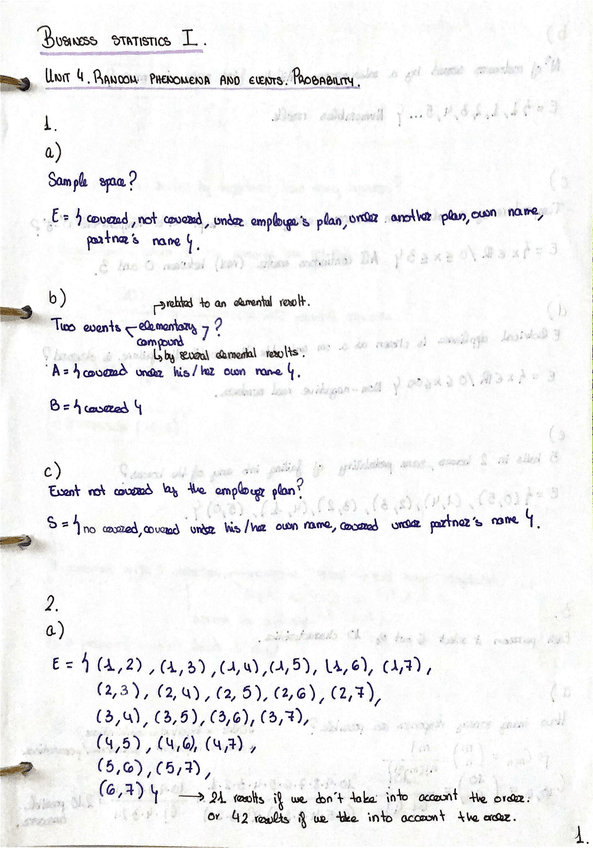 BUSINESS STATISTICS I.
UNIT 4. RANDOM PHENOMENA AND EVENTS. PROBABILITY.
1.
a)
Sample space?
E = { covered, not covered, under employe's plan, under another plan, own name,
partner's name }.
b)
→ related to an elemental result.
Two events < elementary > ?
compound
↳ by several elemental results.
A = { covered under his/her own name }.
B = { covered }
c)
Event not covered by the employer plan?
S = { no covered, covered under his/her own name, covered under partner's name }.
2.
a)
E = { (1,2), (1,3), (1,4), (1,5), (1,6), (1,7),
(2,3), (2,4), (2,5), (2,6), (2,7),
(3,4), (3,5), (3,6), (3,7),
(4,5), (4,6), (4,7),
(5,6), (5,7),
(6,7) } → 21 results if we don't take into account the order.
or 42 results if we take into account the order.
1.